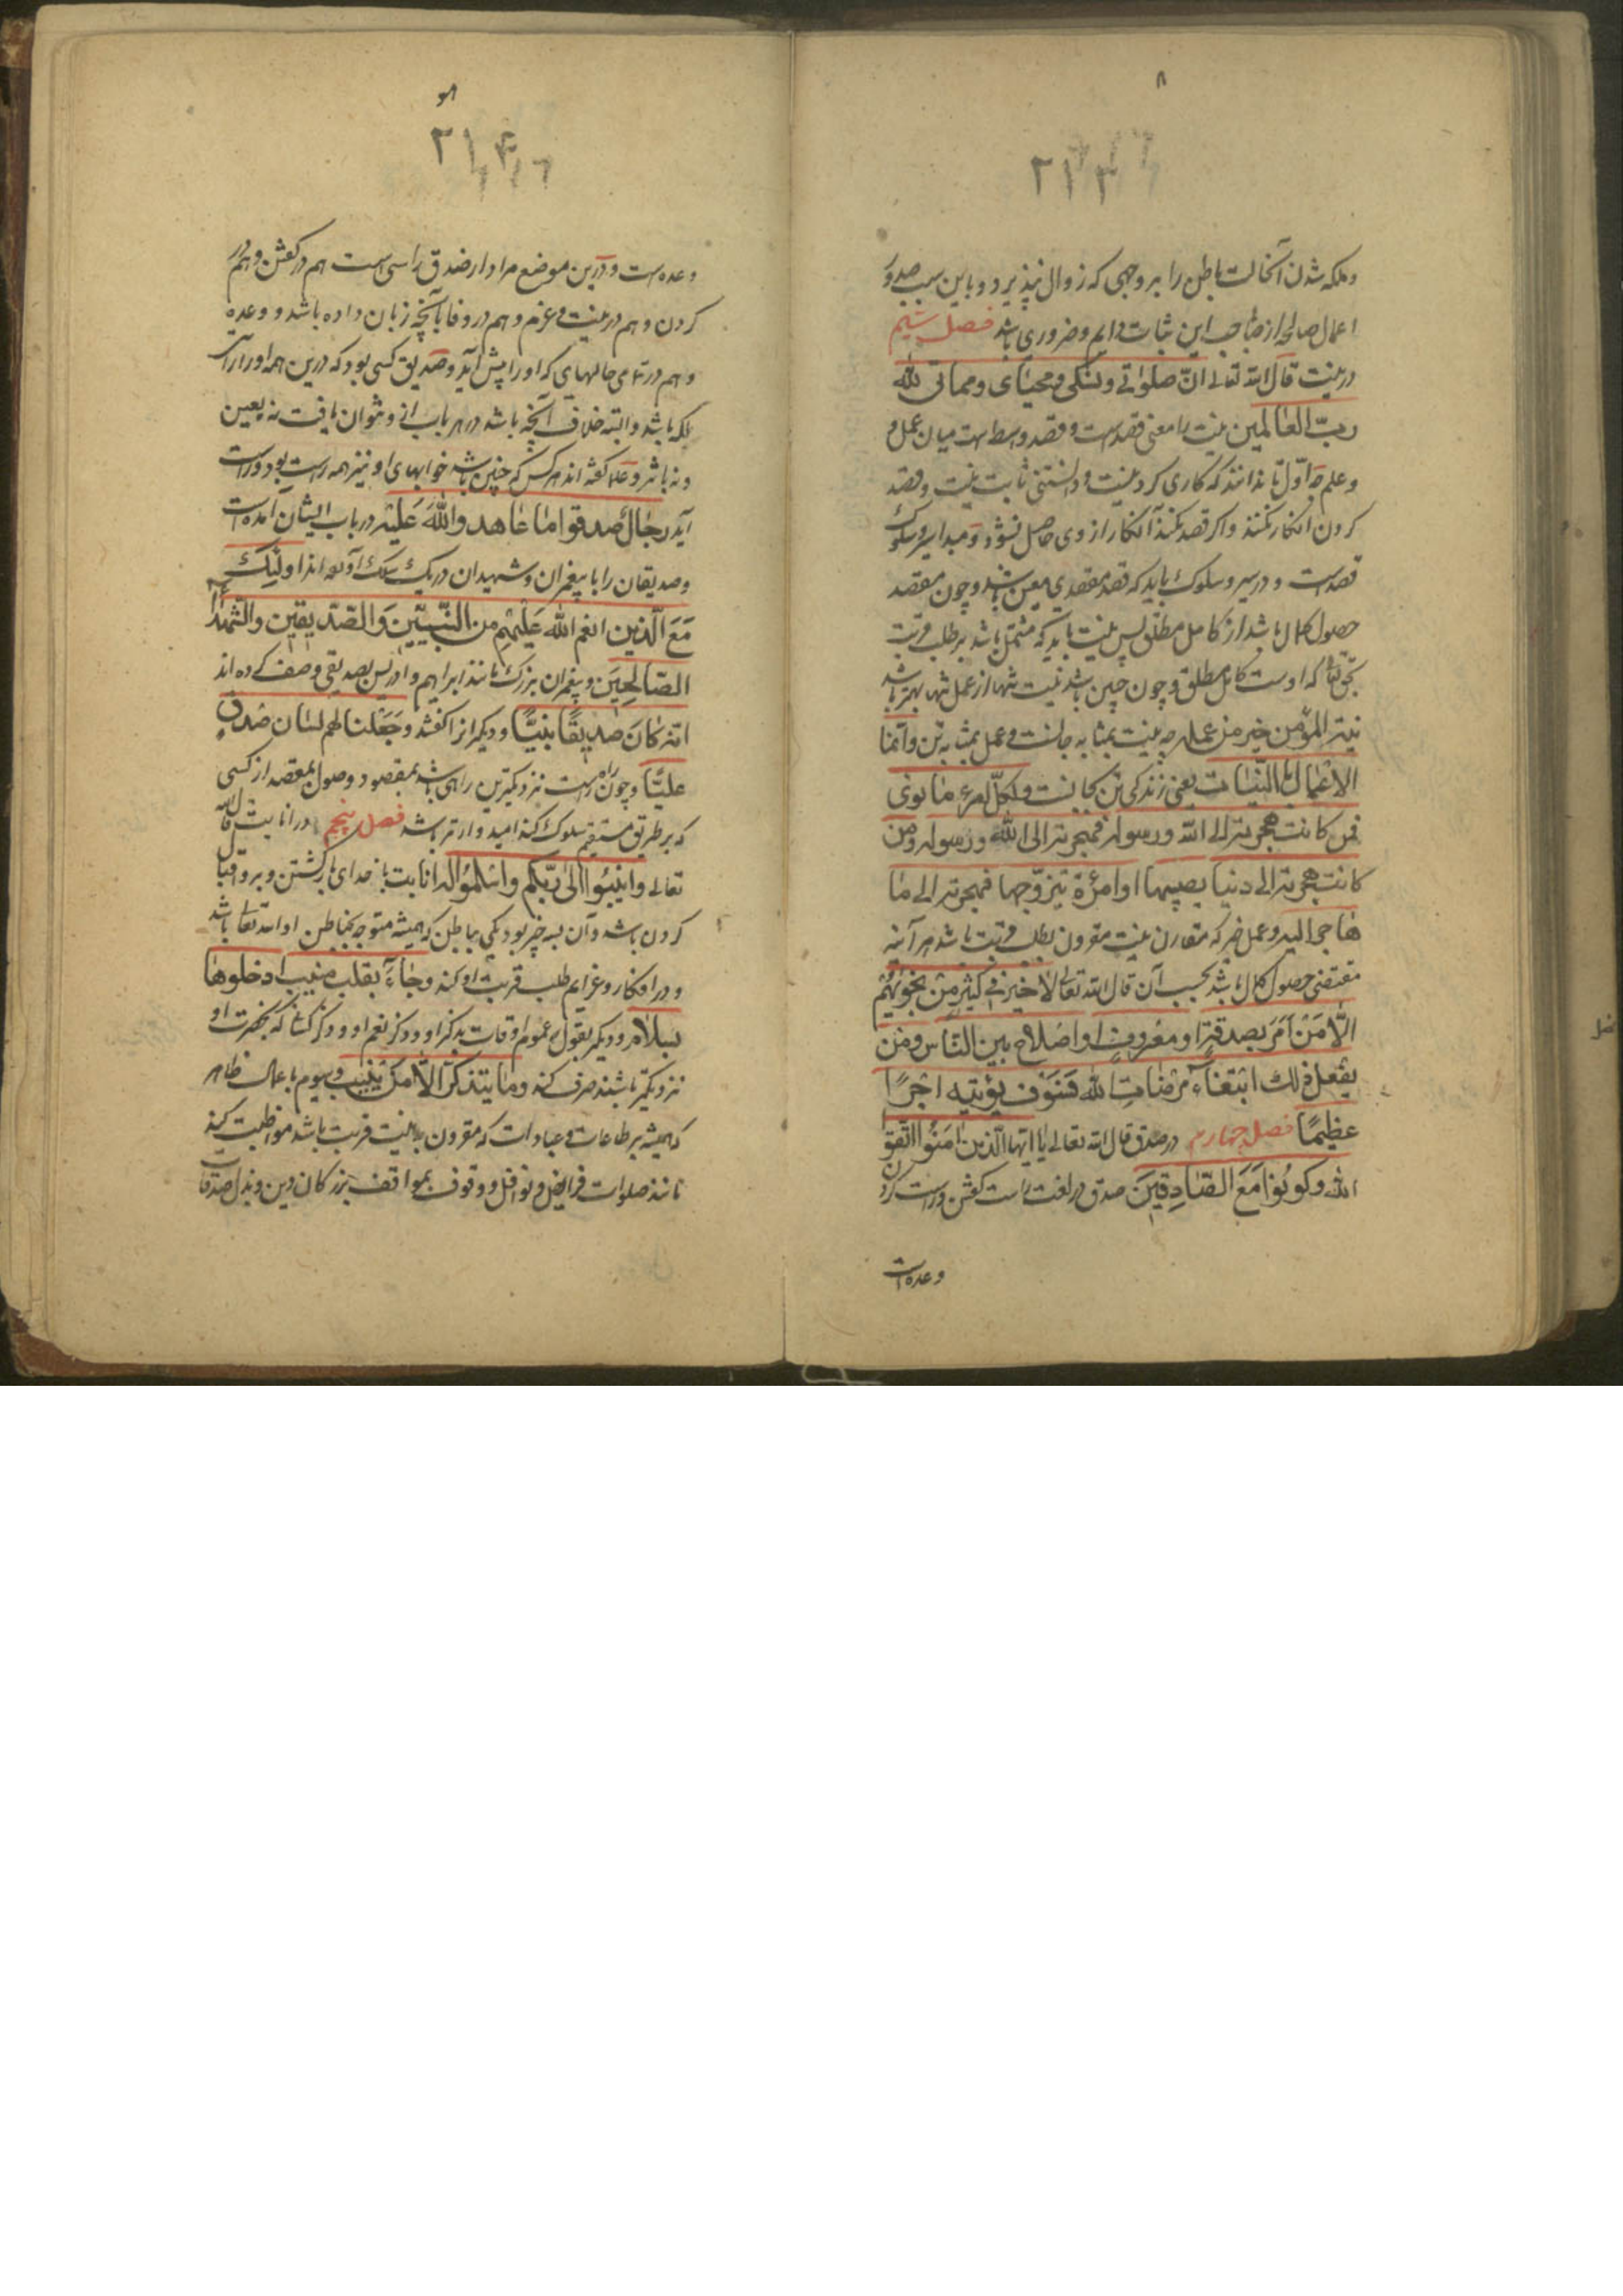 ۸
۲۱۳
و ملکه شدن آنحالت باطن را بر وجهی که زوال نپذیرد و باین سبب صدور
اعمال صالحه از صاحب این ثبات دایم و ضروری باشد فصل سیم
در نیت قال الله تعالی انّ صلوتی و نسکی و محیای و مماتی لله
ربّ العالمین نیت را معنی قصدست و قصد واسطه است میان عمل و
و علم چه اوّل تا ندانند که کاری کردنیست و دانستنی ثابت نیت و قصد
کردن آنکار نکنند و اگر قصد نکنند آنکار از وی حاصل نشود و مبدا سیر و سلوک
قصدست و در سیر و سلوک باید که قصد مقصدی معین باشد و چون مقصد
حصول کمال باشد از کامل مطلق پس نیت باید که مشتمل باشد بر طلب قربت
بحق تعالی که اوست کامل مطلق و چون چنین باشد نیت تنها از عمل تنها بهتر باشد
نیة المؤمن خیر من عمله چه نیت بمثابه جانست و عمل بمثابه تن و انما
الاعمال بالنّیات یعنی زندگی تن بجانست و لکلّ امرء ما نوی
فمن کانت هجرته الی الله و رسوله فهجرته الی الله و رسوله و من
کانت هجرته الی دنیا یصیبها او امرأة یتزوّجها فهجرته الی ما
هاجر الیه و عمل خیر که مقارن نیت مقرون بطلب قربت باشد هر آینه
مقتضی حصول کمال باشد بحسب آن قال الله تعالی لا خیر فی کثیر من نجویهم
الّا من امر بصدقة او معروف او اصلاح بین النّاس و من
یفعل ذلک ابتغاء مرضات الله فسوف یؤتیه اجرًا
عظیمًا فصل چهارم در صدق قال الله تعالی یا ایها الّذین امنوا اتقوا
الله و کونوا مع الصّادقین صدق در لغت راست گفتن و راست کردن
وعده است
۲۱۴
وعده است و درین موضع مراد از صدق راستی است هم در گفتن و هم در
کردن و هم در نیت و عزم و هم در وفا بآنچه زبان داده باشد و وعده
و هم در تمامی حالهای که او را پیش آید و صدیق کسی بود که درین همه او را راستی
ملکه باشد و البته خلاف آنچه باشد در هر باب از و نتوان یافت نه بعین
و نه باثر و علما گفته اند هر کس که چنین باشد خوابهای او نیز همه راست بود و راست
آید رجال صدقوا ما عاهدوا الله علیه در باب ایشان آمده است
و صدیقان را با پیغمران و شهیدان در یک سلک آورده اند اولئک
مع الّذین انعم الله علیهم من النّبیّین و الصّدیقین و الشهداء
الصّالحین و پیغمران بزرگ مانند ابراهیم و ادریس بصدیقی وصف کرده اند
انّه کان صدیقًا نبیًّا و دیگرانرا گفته و جعلنا لهم لسان صدق
علیًّا و چون راه راست نزدیکترین راهی باشد بمقصود وصول بمقصد از کسی
که بر طریق مستقیم سلوک کند امیدوارتر باشد فصل پنجم در انابت قال الله
تعالی و انیبوا الی ربّکم و اسلموا له انابت با خدای بازگشتن و برو اقبال
کردن باشد و آن بسه چیز بود یکی بباطن که همیشه متوجه بباطن او الله تعالی باشد
و در افکار و عزایم طلب قربت او کند و جاء بقلب منیب ادخلوها
بسلام و دیگر بقول عموم اوقات بذکر او و ذکر نعم او و ذکر کسانی که بحضرت او
نزدیکتر باشند صرف کند و ما یتذکر الّا من ینیب و سیوم باعمال ظاهر
که همیشه بر طاعات و عبادات که مقرون به نیت قربت باشد مواظبت کند
مانند صلوات فرایض و نوافل و وقوف بمواقف بزرگان دین و بذل صدقات